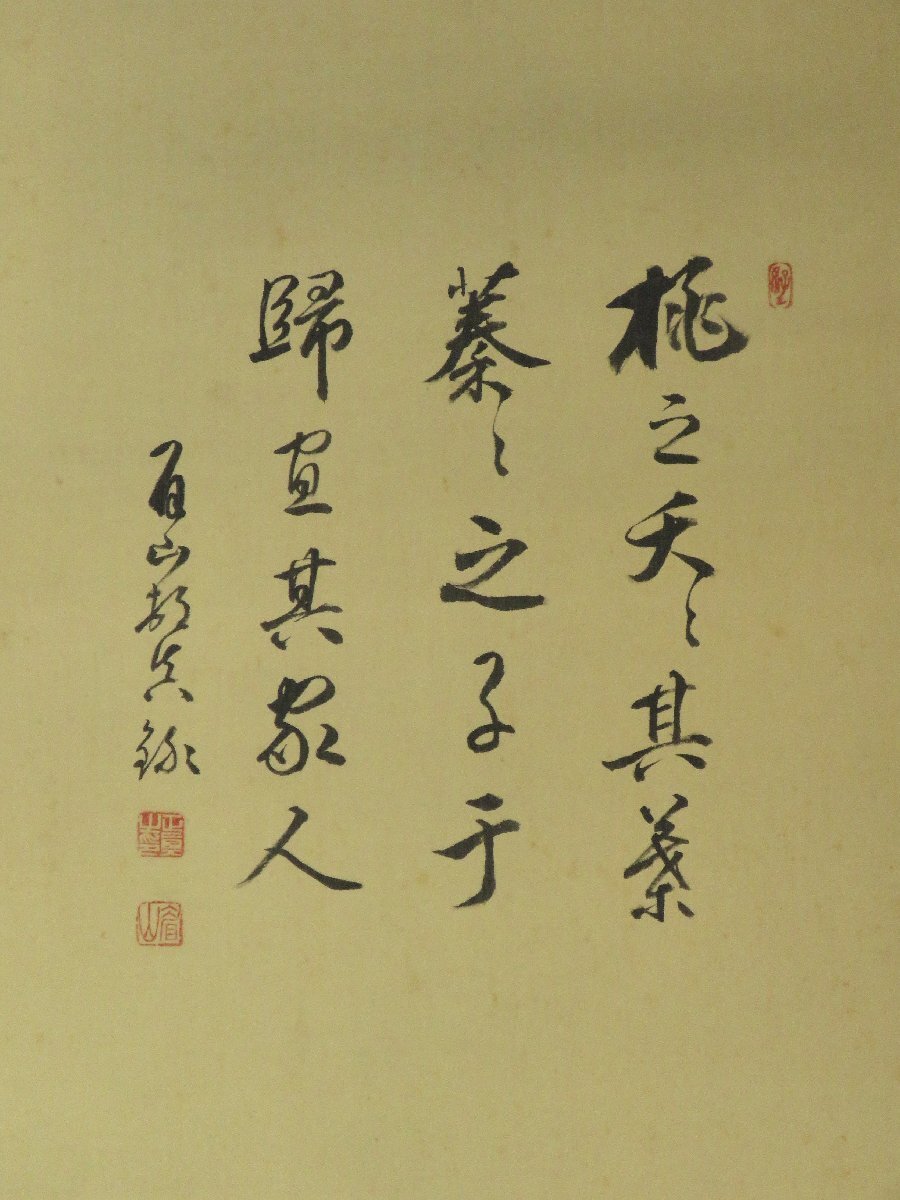 桃之夭〻其葉
蓁〻之子于
歸宜其家人